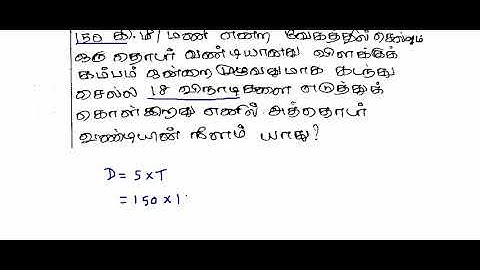 150 கி.மீ/மணி என்ற வேகத்தில் செல்லும்
ஒரு தொடர் வண்டியானது விளக்குக்
கம்பம் ஒன்றை முழுவதுமாக கடந்து
செல்ல 18 விநாடிகளை எடுத்துக்
கொள்கிறது எனில் அத்தொடர்
வண்டியின் நீளம் யாது?
D = S x T
= 150 x 1